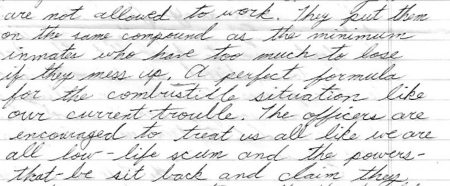 are not allowed to work. They put them
on the same compound as the minimum
inmates who have too much to lose
if they mess up. A perfect formula
for the combustible situation like
our current trouble. The officers are
encouraged to treat us all like we are
all low-life scum and the powers-
that-be sit back and claim they